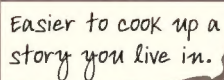 Easier to cook up a
story you live in.